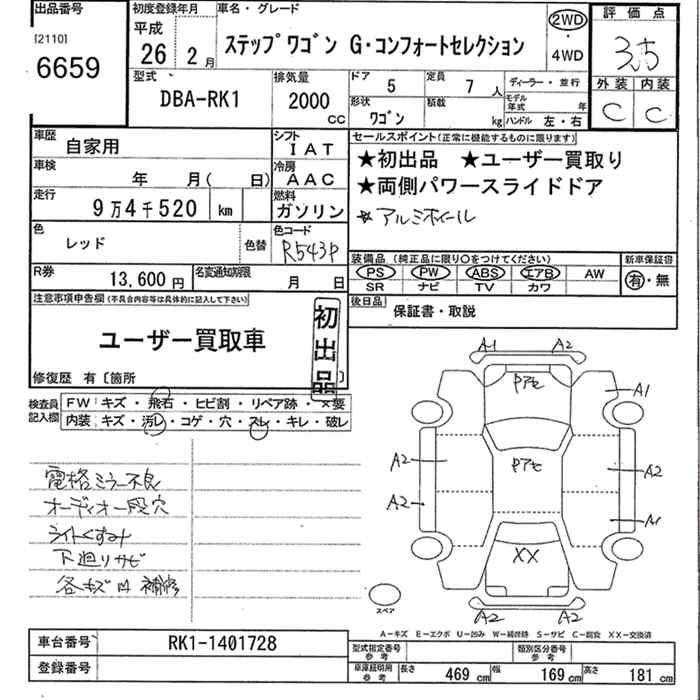 出品番号
[2110]
6659
初度登録年月
平成
26 2月
車名・グレード
ステップワゴン G・コンフォートセレクション
2WD
・
4WD
評価点
3.5
外装 内装
C C
型式
DBA-RK1
排気量
2000
CC
ドア
5
定員
7人
形状
ワゴン
積載
kg
ディーラー・並行
モデル年式 年
ハンドル 左・右
車歴
自家用
シフト
IAT
車検
年 月( 日)
冷房
AAC
走行
9万4千520 km
燃料
ガソリン
色
レッド
色替
色コード
R543P
R券
13,600円
名変通知期限
月 日
セールスポイント(正常に機能するものに限ります)
★初出品 ★ユーザー買取り
★両側パワースライドドア
★アルミホイール
装備品 (純正品に限り○をつけてください)
PS PW ABS エアB AW
SR ナビ TV カワ
新車保証書
有・無
後日品
保証書・取説
注意事項申告欄(不具合内容等は具体的に記入して下さい)
ユーザー買取車
初出品
修復歴 有〔箇所 〕
検査員記入欄
FW:キズ・飛石・ヒビ割・リペア跡・×要
内装:キズ・汚レ・コゲ・穴・スレ・キレ・破レ
電格ミラー不良
オーディオ一段穴
ライトくすみ
下廻りサビ
各キズ凹 補修
A1 A2
Pアセ
A1
A2
Pアセ
A2
A2
A1
XX
A2 A2
スペア
A-キズ E-エクボ U-凹み W-補修跡 S-サビ C-腐食 XX-交換済
車台番号
RK1-1401728
登録番号
型式指定番号
参考
類別区分番号
参考
車庫証明用
参考
長さ 469 cm
幅 169 cm
高さ 181 cm